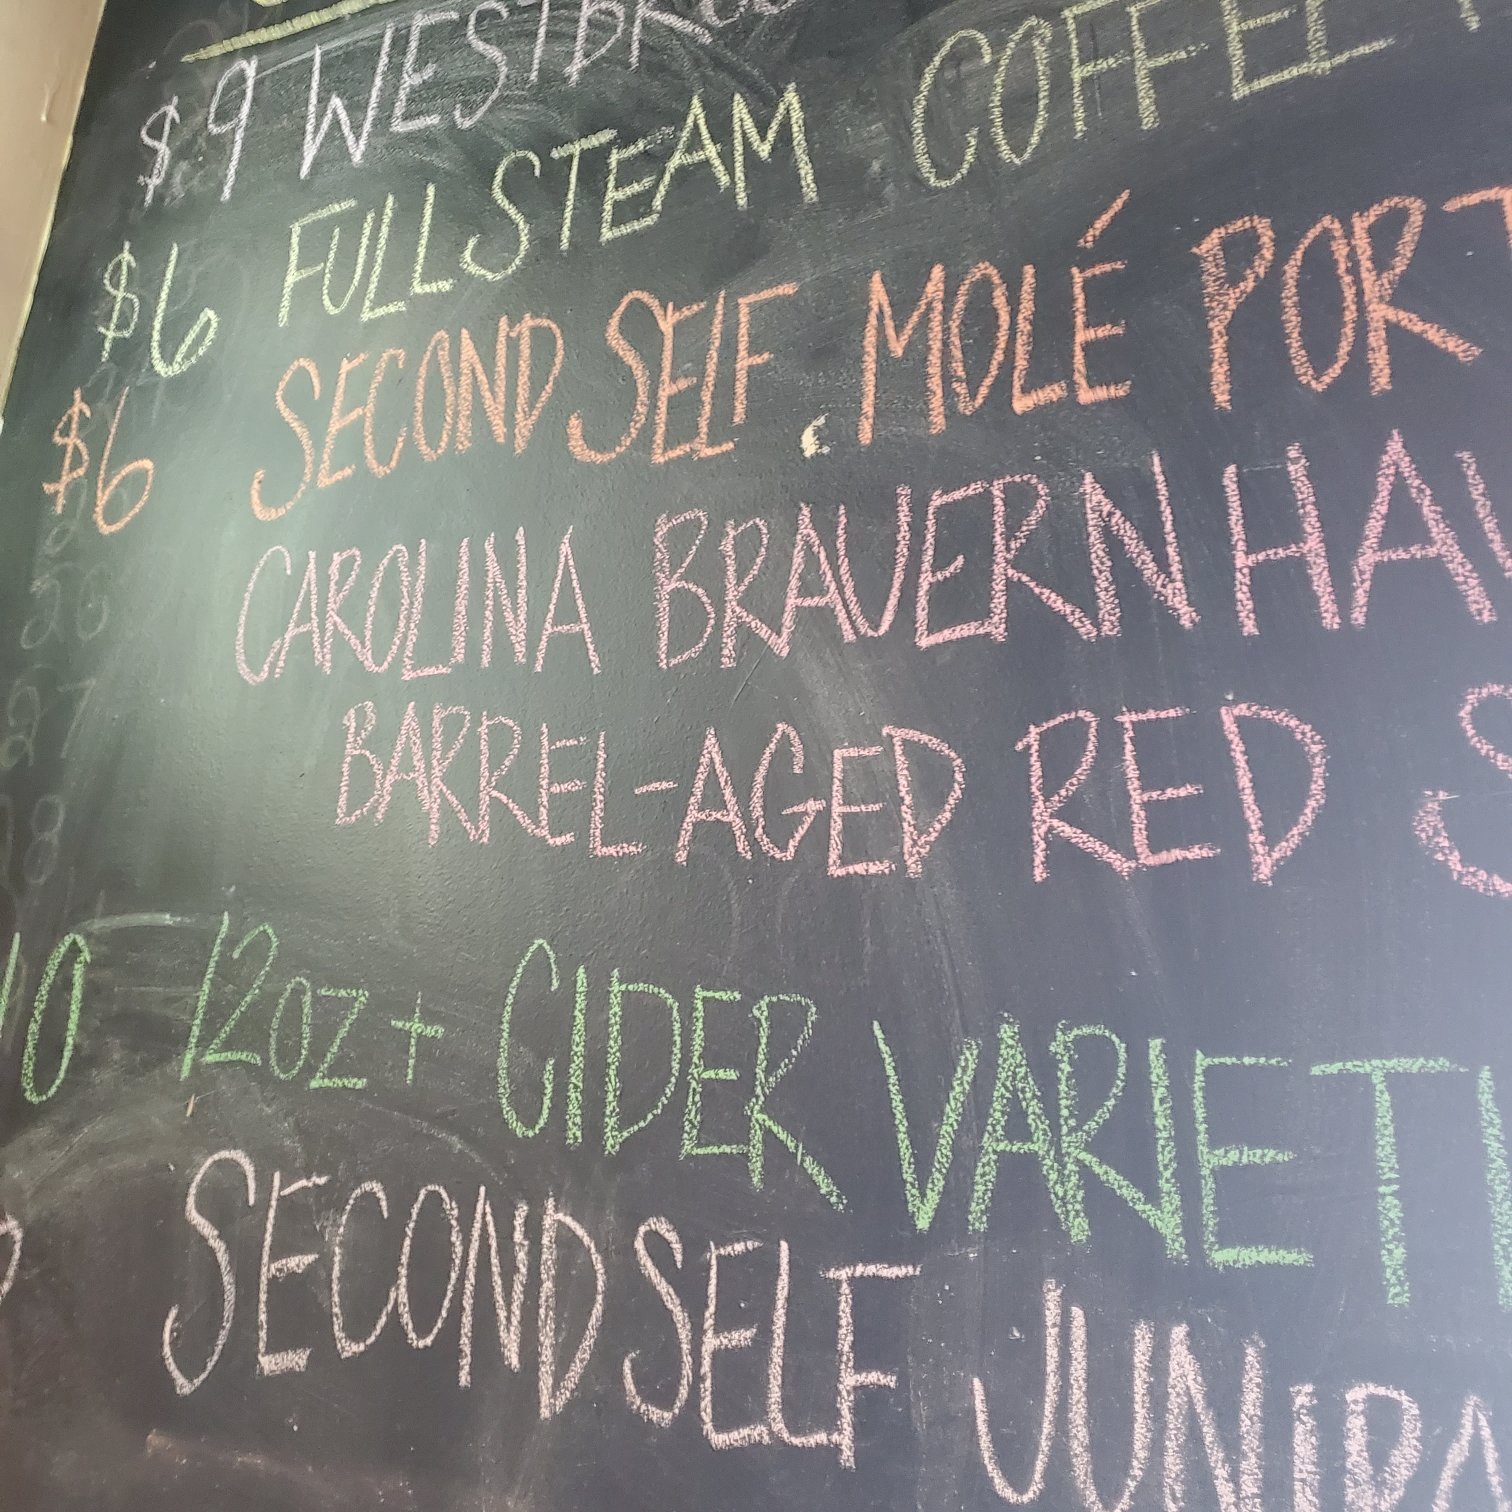 $9 WESTBROO
$6 FULLSTEAM COFFEE
$6 SECOND SELF MOLÉ PORT
CAROLINA BRAUERNHAU
BARREL-AGED RED S
10 12OZ+ CIDER VARIETI
SECOND SELF JUNIPA